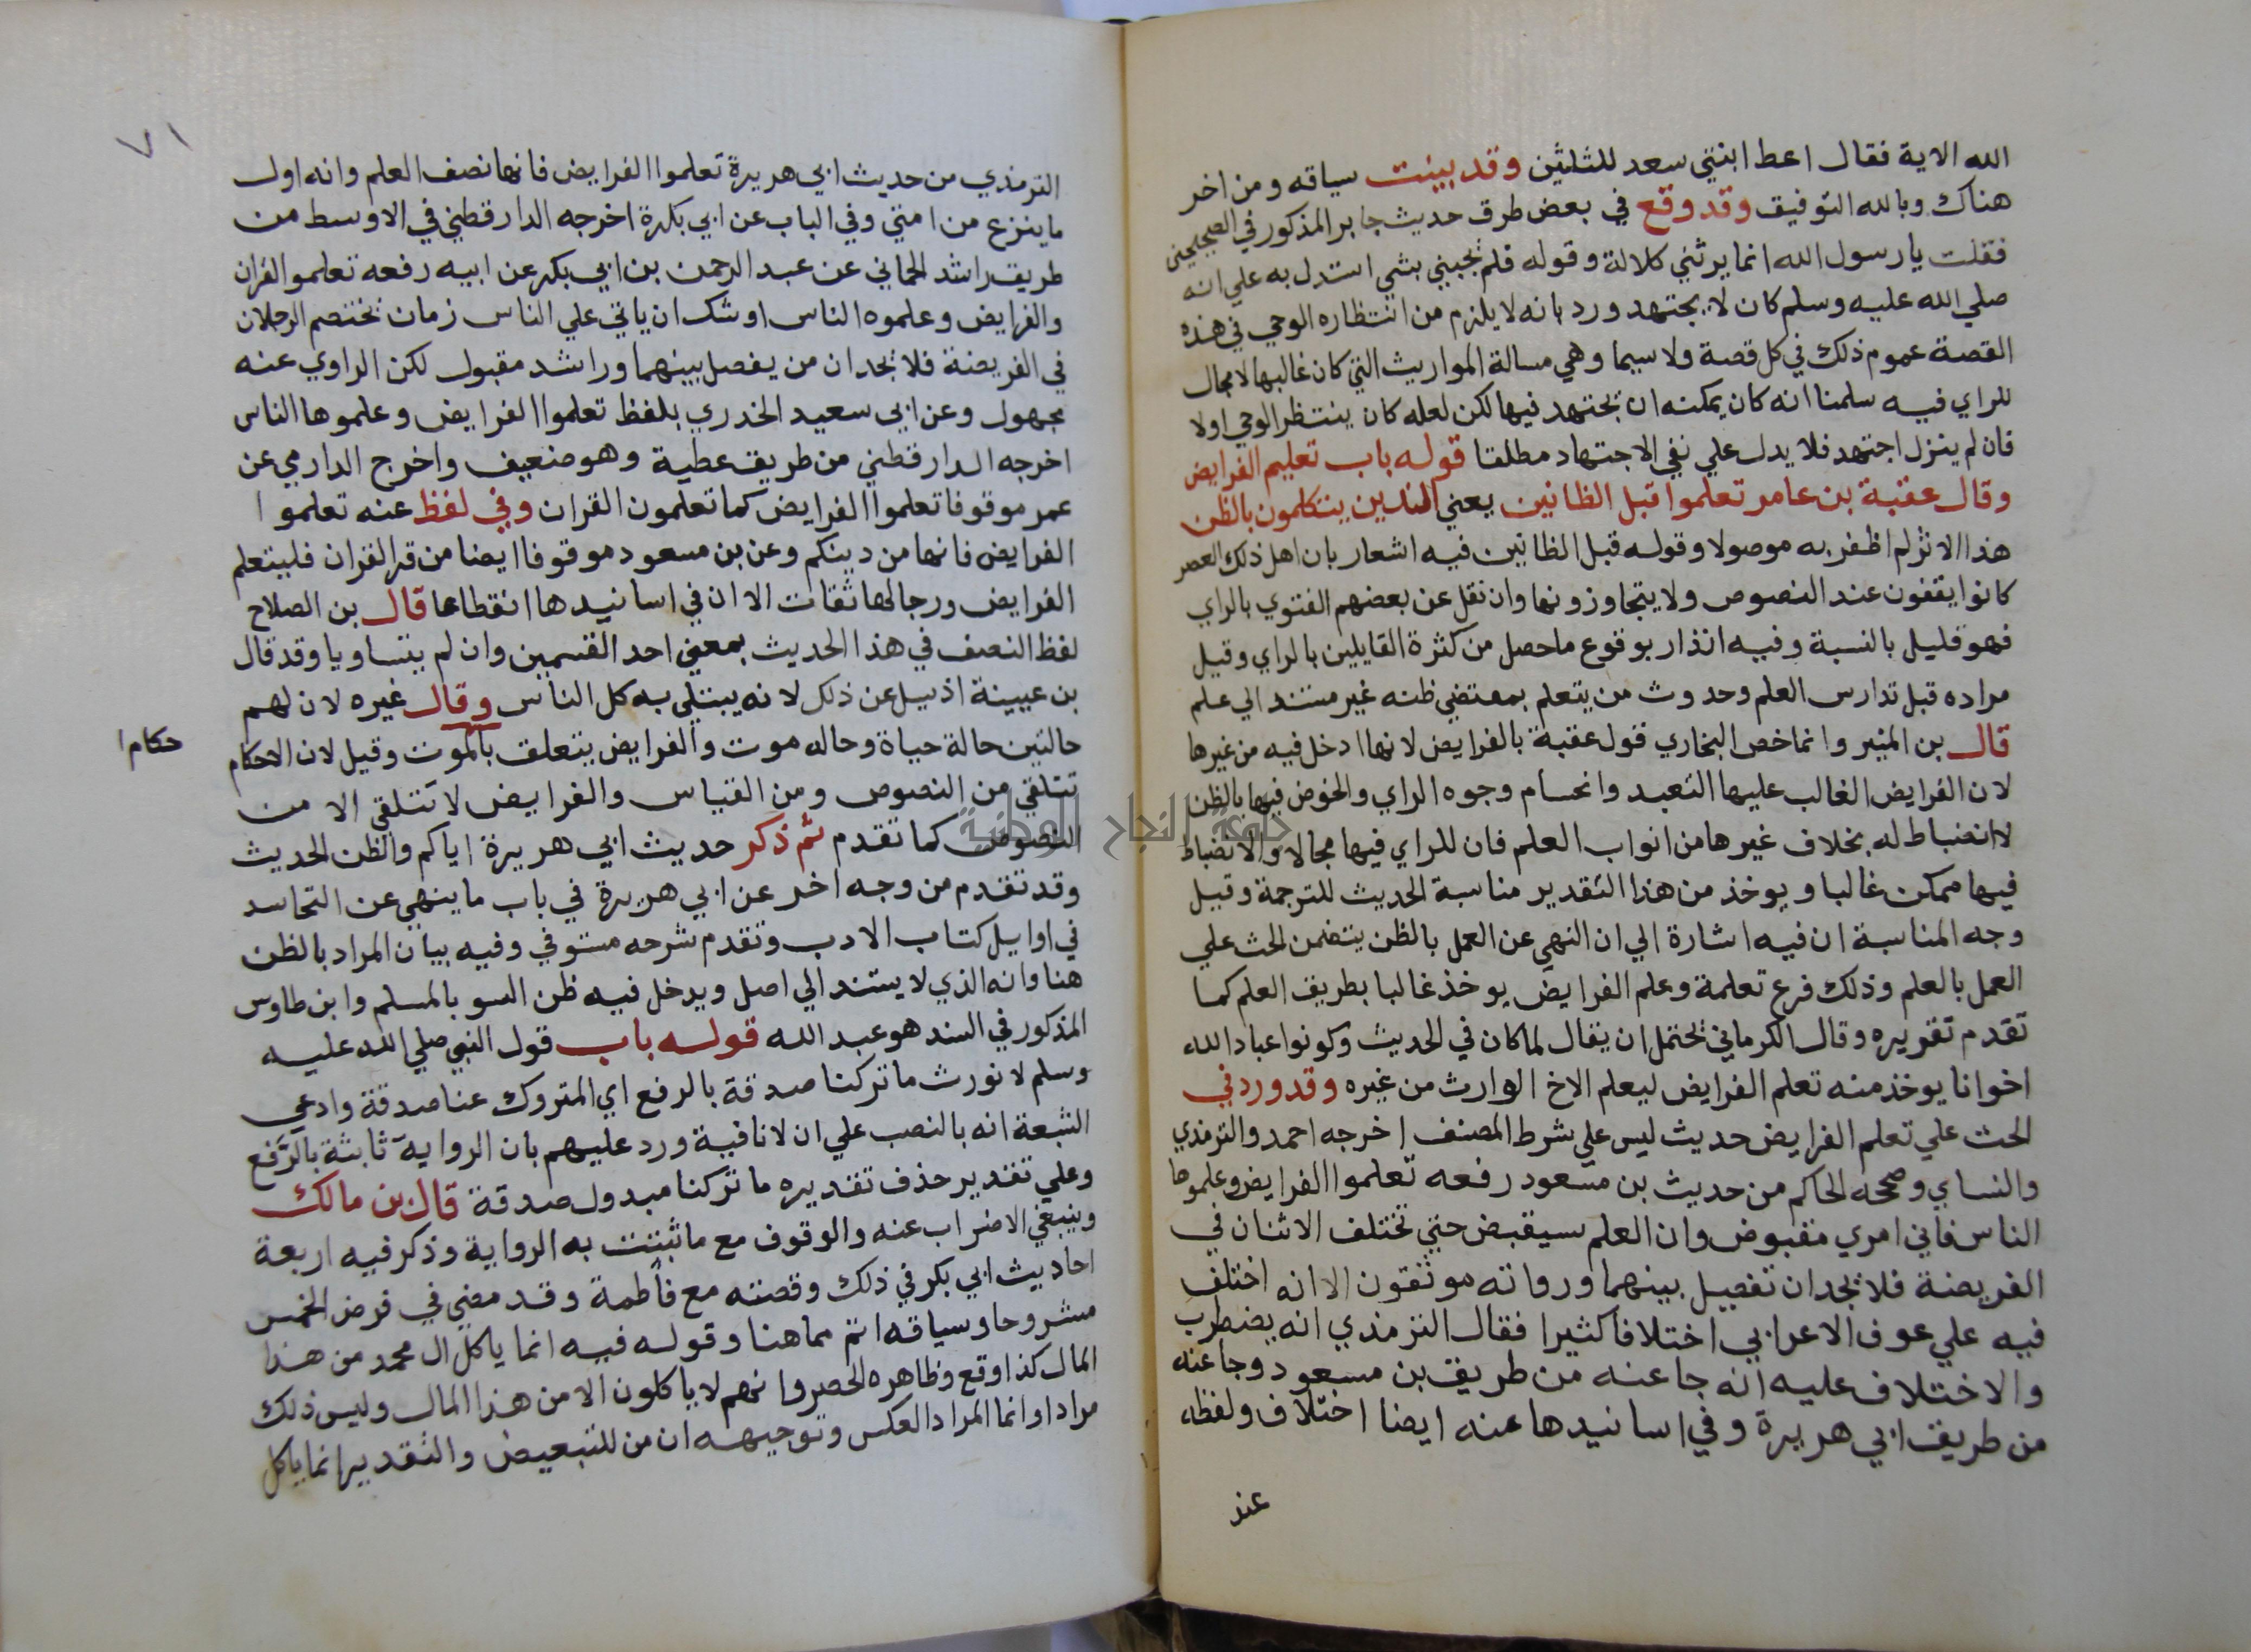 الله الاية فقال اعط ابنتي سعد للثلثين وقد بينت سياقه ومن اخر
هناك وبالله التوفيق وقد وقع في بعض طرق حديث جابر المذكور في الصحيحين
فقلت يا رسول الله انما يرثني كلالة وقوله فلم يجبني بشي استدل به علي انه
صلي الله عليه وسلم كان لا يجتهد ورد بانه لا يلزم من انتظاره الوحي في هذه
القصة عموم ذلك في كل قصة ولا سيما وهي مسالة المواريث التي كان غالبها لا مجال
للراي فيه سلمنا انه كان يمكنه ان يجتهد فيها لكن لعله كان ينتظر الوحي اولا
فان لم ينزل اجتهد فلا يدل علي نفي الاجتهاد مطلقا قوله باب تعليم الفرايض
وقال عقبة بن عامر تعلموا قبل الظانين يعني الذين يتكلمون بالظن
هذا الاثر لم اظفر به موصولا وقوله قبل الظانين فيه اشعار بان اهل ذلك العصر
كانوا يقفون عند النصوص ولا يتجاوزونها وان نقل عن بعضهم الفتوي بالراي
فهو قليل بالنسبة وفيه انذار بوقوع ما حصل من كثرة القايلين بالراي وقيل
مراده قبل تدارس العلم وحدوث من يتعلم بمقتضي ظنه غير مستند الي علم
قال بن المنير وانما خص البخاري قول عقبة بالفرايض لانها ادخل فيه من غيرها
لان الفرايض الغالب عليها التعبد وانحسام وجوه الراي والخوض فيها بالظن
لا انضباط له بخلاف غيرها من ابواب العلم فان للراي فيها مجالا والانضباط
فيها ممكن غالبا ويوخذ من هذا التقدير مناسبة الحديث للترجمة وقيل
وجه المناسبة ان فيه اشارة الي ان النهي عن العمل بالظن يتضمن الحث علي
العمل بالعلم وذلك فرع تعلمة وعلم الفرايض يوخذ غالبا بطريق العلم كما
تقدم تقريره وقال الكرماني يحتمل ان يقال لما كان في الحديث وكونوا عباد الله
اخوانا يوخذ منه تعلم الفرايض ليعلم الاخ الوارث من غيره وقد ورد في
الحث علي تعلم الفرايض حديث ليس علي شرط المصنف اخرجه احمد والترمذي
والنساي وصححه الحاكم من حديث بن مسعود رفعه تعلموا الفرايض وعلموها
الناس فاني امري مقبوض وان العلم سيقبض حتي تختلف الاثنان في
الفريضة فلا يجدان تفصيل بينهما ورواته موثقون الا انه اختلف
فيه علي عوف الاعرابي اختلافا كثيرا فقال الترمذي انه يضطرب
والاختلاف عليه انه جا عنه من طريق بن مسعود وجا عنه
من طريق ابي هريرة وفي اسانيدها عنه ايضا اختلاف ولفظه
عند
٧١
الترمذي من حديث ابي هريرة تعلموا الفرايض فانها نصف العلم وانه اول
ما ينزع من امتي وفي الباب عن ابي بكرة اخرجه الدارقطني في الاوسط من
طريق راشد الحماني عن عبد الرحمن بن ابي بكر عن ابيه رفعه تعلموا القران
والفرايض وعلموه الناس اوشك ان ياتي علي الناس زمان تختصم الرجلان
في الفريضة فلا يجدان من يفصل بينهما وراشد مقبول لكن الراوي عنه
مجهول وعن ابي سعيد الخدري بلفظ تعلموا الفرايض وعلموها الناس
اخرجه الدارقطني من طريق عطية وهو ضعيف واخرج الدارمي عن
عمر موقوفا تعلموا الفرايض كما تعلمون القران وفي لفظ عنه تعلموا ا
الفرايض فانها من دينكم وعن بن مسعود موقوفا ايضا من قرا القران فليتعلم
الفرايض ورجالها ثقات الا ان في اسانيدها انقطاعا قال بن الصلاح
لفظ النصف في هذا الحديث بمعني احد القسمين وان لم يتساويا وقد قال
بن عيينة اذ سيل عن ذلك لانه يبتلي به كل الناس وقال غيره لان لهم
حالتين حالة حياة وحاله موت والفرايض يتعلق بالموت وقيل لان الاحكام
حكام ا
تتلقي من النصوص ومن القياس والفرايض لا تتلقي الا من
النصوص كما تقدم ثم ذكر حديث ابي هريرة اياكم والظن الحديث
وقد تقدم من وجه اخر عن ابي هريرة في باب ما ينهي عن التحاسد
في اوايل كتاب الادب وتقدم شرحه مستوفي وفيه بيان المراد بالظن
هنا وانه الذي لا يستند الي اصل ويدخل فيه ظن السو بالمسلم وابن طاوس
المذكور في السند هو عبد الله قوله باب قول النبي صلي الله عليه
وسلم لا نورث ما تركنا صدقة بالرفع اي المتروك عنا صدقة وادعي
الشيعة انه بالنصب علي ان لا نافية ورد عليهم بان الرواية ثابتة بالرفع
وعلي تقدير حذف تقديره ما تركنا مبدول صدقة قال بن مالك
وينبغي الاضراب عنه والوقوف مع ما ثبتت به الرواية وذكر فيه اربعة
احاديث ابي بكر في ذلك وقصته مع فاطمة وقد مضي في فرض الخمس
مشروحا وسياقه اتم مما هنا وقوله فيه انما ياكل ال محمد من هذا
المال كذا وقع وظاهره الحصر وانهم لا ياكلون الا من هذا المال وليس ذلك
مرادا وانما المراد العكس وتوجيهه ان من للتبعيض والتقدير انما ياكل
جامعة النجاح الوطنية